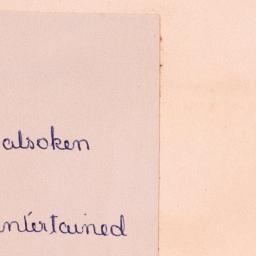 alsoken
entertained